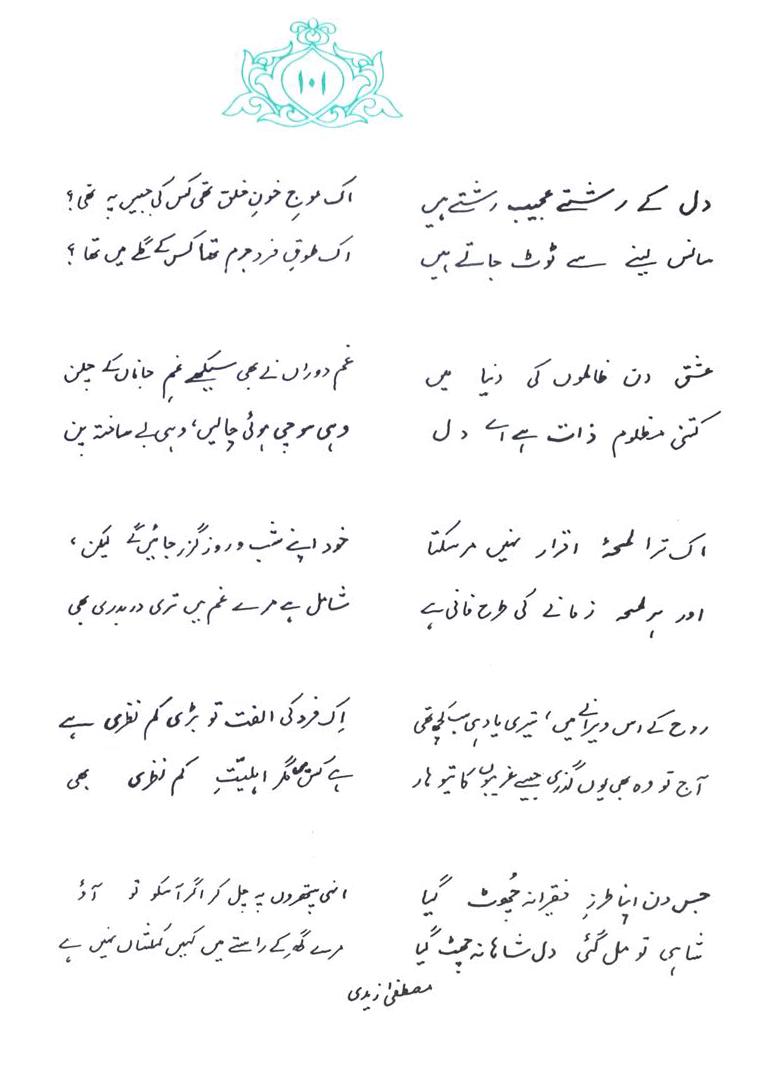 ۱۰۱
دل کے رشتے عجیب رشتے ہیں
سانس لینے سے ٹوٹ جاتے ہیں
عشق دن ظالموں کی دنیا میں
کتنی مظلوم ذات ہے اے دل
اک ترا لمحۂ اقرار نہیں مر سکتا
اور ہر لمحہ زمانے کی طرح فانی ہے
روح کے اس ویرانے میں، تیری یاد ہی سب کچھ تھی
آج تو وہ بھی یوں گذری جیسے غریبوں کا تیوہار
جس دن اپنا طرزِ فقیرانہ چُھوٹ گیا
شاہی تو مل گئی دل شاہانہ چھٹ گیا
اک موجِ خونِ خلق تھی کس کی جبیں پہ تھی؟
اک طوقِ فردِ جرم تھا کس کے گلے میں تھا؟
غم دوراں نے بھی سیکھے غمِ جاناں کے چلن
وہی سوچی ہوئی چالیں، وہی بے ساختہ پن
خود اپنے شب و روز گزر جائیں گے لیکن،
شامل ہے مرے غم میں تری در بدری بھی
اِک فرد کی الفت تو بڑی کم نظری ہے
ہے کس میں مگر اہلیّتِ کم نظری بھی
انہی پتھروں پہ چل کر اگر آ سکو تو آؤ
مرے گھر کے راستے میں کہیں کہکشاں نہیں ہے
مصطفیٰ زیدی